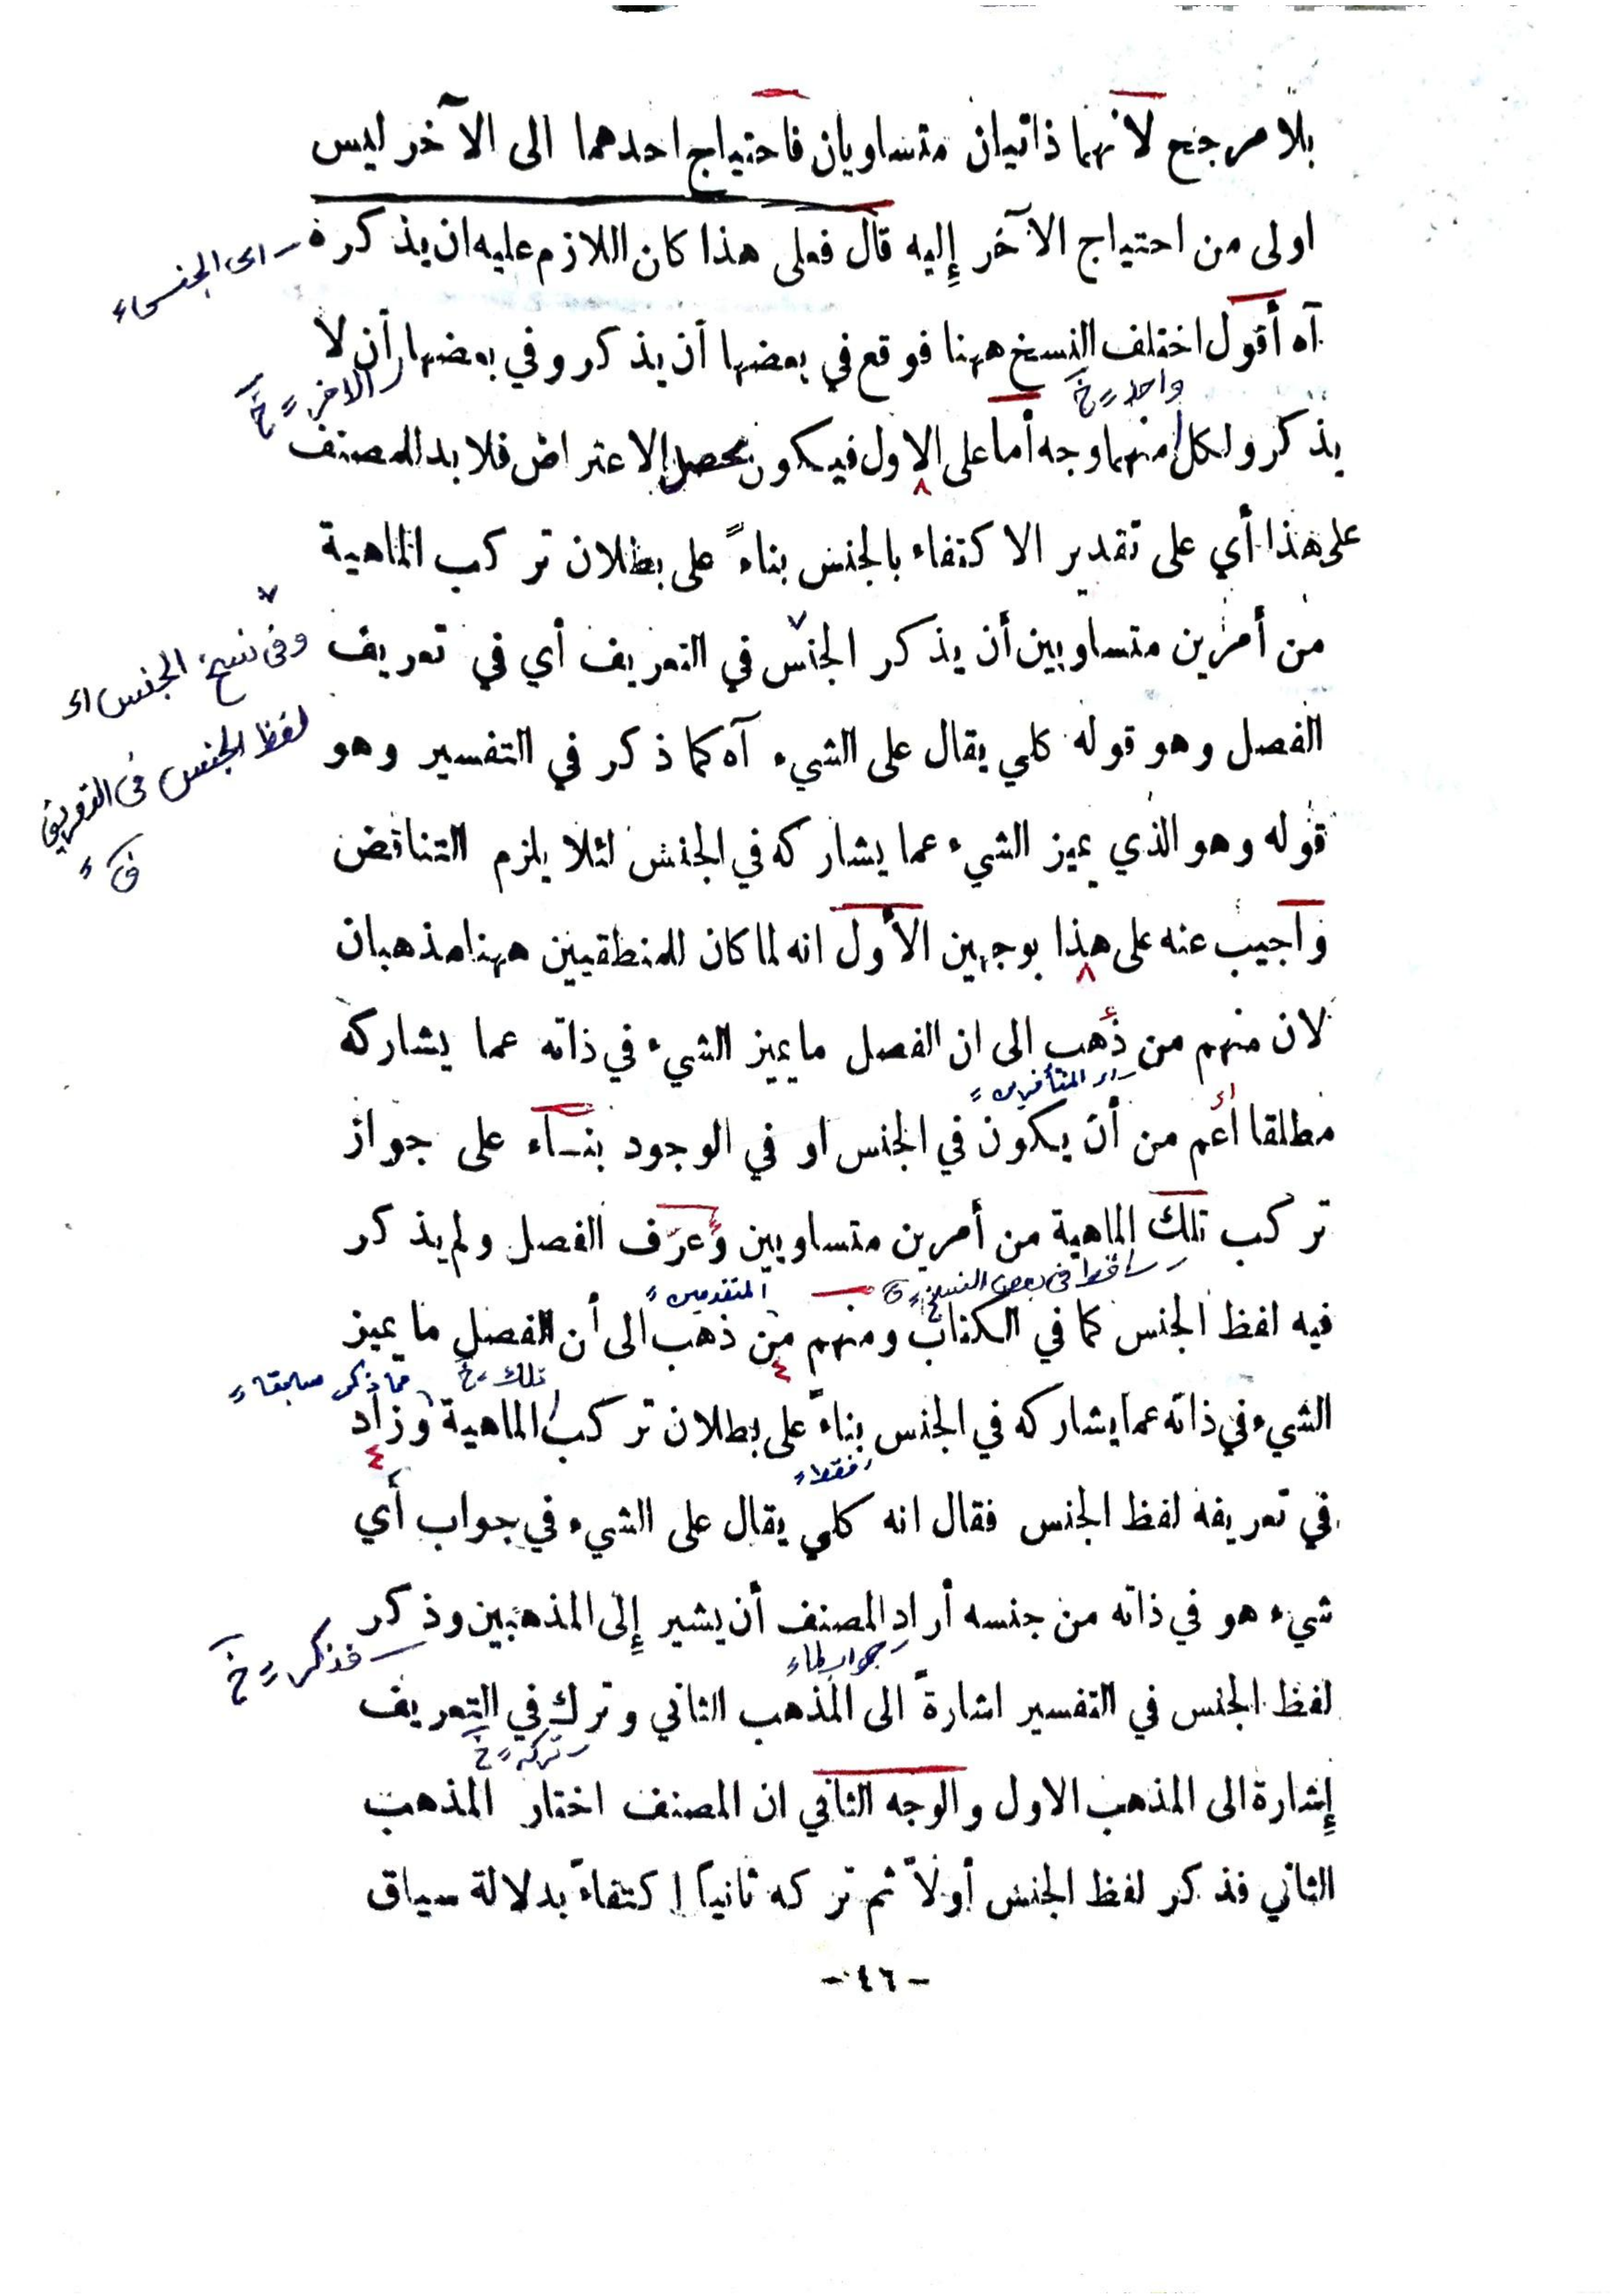 بلا مرجح لأنهما ذاتيان متساويان فاحتياج احدهما الى الآخر ليس
اولى من احتياج الآخر إليه قال فعلى هذا كان اللازم عليه ان يذكره
اى الجنس
آه أقول اختلف النسخ ههنا فوقع في بعضها أن يذكر وفي بعضها أن لا
الاخر خ
واحد خ
يذكر ولكل منهما وجه أما على الاول فيكون محصل الاعتراض فلا بد للمصنف
على هذا أي على تقدير الاكتفاء بالجنس بناءً على بطلان تركب الماهية
من أمرين متساويين أن يذكر الجنس في التعريف أي في تعريف
وفى نسخ الجنس اى
الفصل وهو قوله كلي يقال على الشيء آه كما ذكر في التفسير وهو
لفظ الجنس فى التعريف
قوله وهو الذي يميز الشيء عما يشاركه في الجنس لئلا يلزم التناقض
وأجيب عنه على هذا بوجهين الأول انه لما كان للمنطقيين ههنا مذهبان
لان منهم من ذهب الى ان الفصل ما يميز الشيء في ذاته عما يشاركه
المتأخرين
مطلقا أعم من أن يكون في الجنس او في الوجود بنــاء على جواز
تركب تلك الماهية من أمرين متساويين وعرّف الفصل ولم يذكر
ساقط فى بعض النسخ
المتقدمين
فيه لفظ الجنس كما في الكتاب ومنهم من ذهب الى أن الفصل ما يميز
تلك خ
مما ذكر سابقا
الشيء في ذاته عما يشاركه في الجنس بناءً على بطلان تركب الماهية وزاد
فقط
في تعريفه لفظ الجنس فقال انه كلي يقال على الشيء في جواب أي
شيء هو في ذاته من جنسه أراد المصنف أن يشير إلى المذهبين وذكر
جواب لما
فذكر خ
لفظ الجنس في التفسير اشارةً الى المذهب الثاني وترك في التعريف
تركه خ
إشارة الى المذهب الاول والوجه الثاني ان المصنف اختار المذهب
الثاني فذكر لفظ الجنس أولاً ثم تركه ثانياً اكتفاءً بدلالة سياق
- ٤٦ -